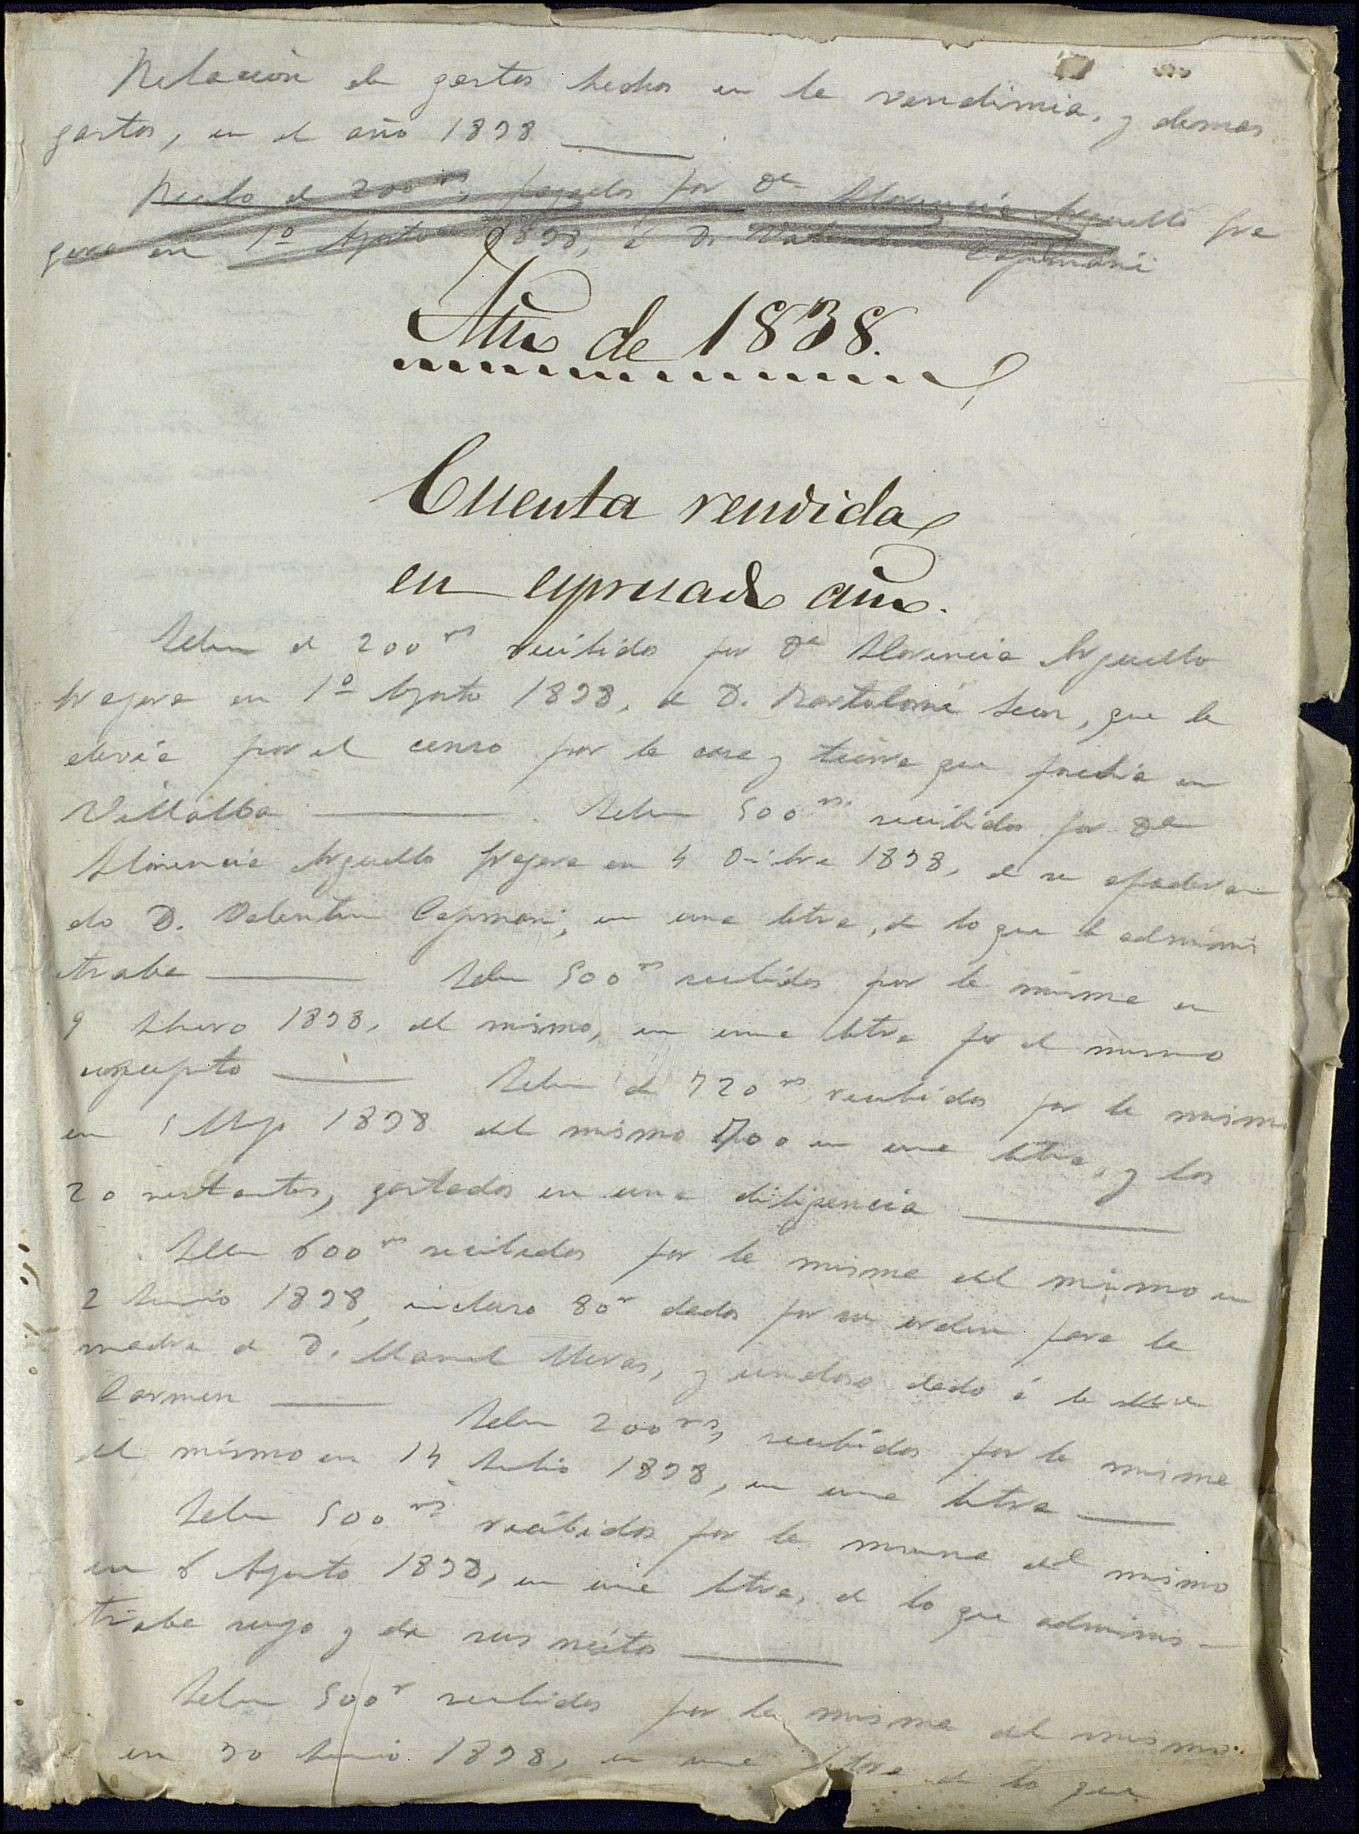 Relación de gastos hechos en la vendimia, y demas
gastos, en el año 1838
Recibo de 200 rs, pagados por Da Florencia Arguello Fra
gera en 1o Agosto 1838, a D. Valentin Capmani
Año de 1838.
Cuenta rendida
en espresado año.
de 200 rs recibido por Da Florencia Arguello
Fragera en 1o Agosto 1838, de D. Bartolomé que le
devía por el censo por la casa y tierra que posehia en
Villalba 500 rs. recibidos por Da
Florencia Arguello Fragera en 4 1838, de su apodera
do D. Valentin Capmani, en una letra, de lo que le adminis
traba 500 rs recibidos por la misma en
9 1838, del mismo, en una letra por el mismo
concepto de 720 rs recibidos por la misma
en 1838 del mismo 700 en una letra, y los
20 restantes, gastados en una diligencia
600 rs recibidos por la misma del mismo en
2 Junio 1838, incluso 80 r dados por su orden para la
madre de D. Manuel y un duro dado á la
Carmen 200 rs, recibidos por la misma
del mismo en 14 Julio 1838, en una letra
500 rs recibidos por la misma del mismo
en 6 Agosto 1838, en una letra, de lo que adminis-
traba suyo y de sus
500 r recibidos por la misma del mismo
en 30 Junio 1838, en una letra de lo que